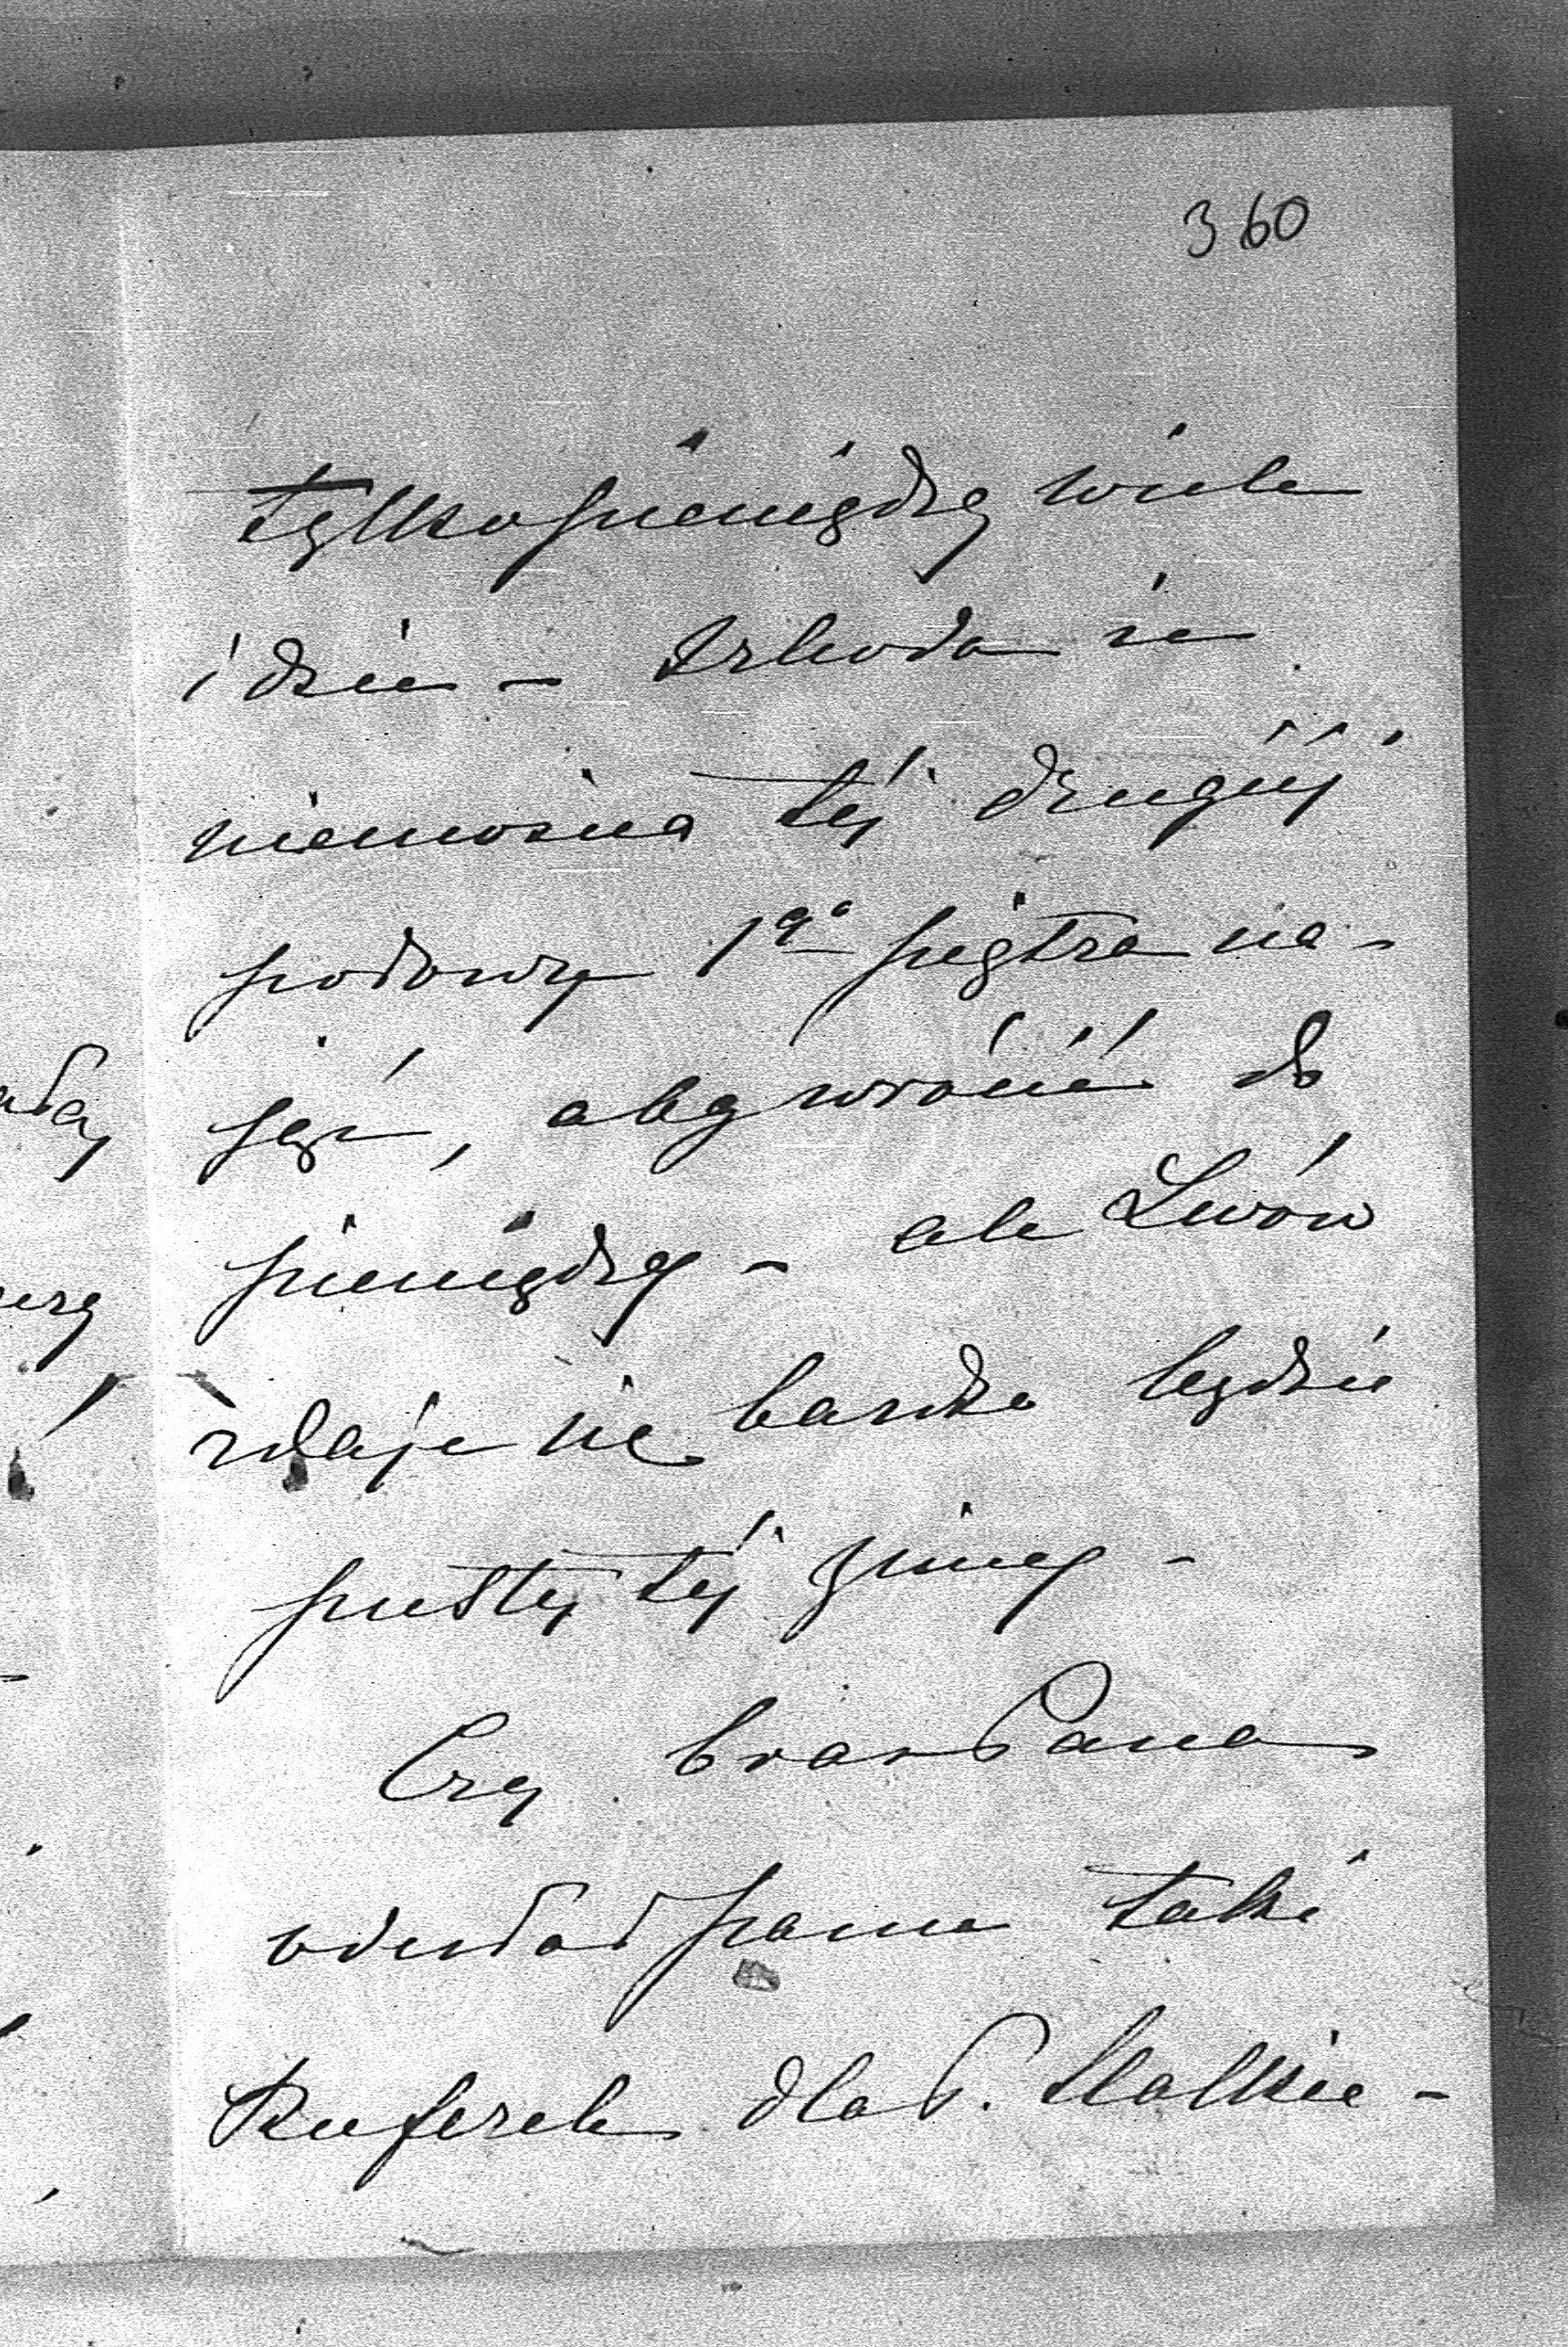 360
tylko pieniędzy wiele
idzie – szkoda że
niemożna téj drugiéj
połowy 1go piętra na-
jąć, aby wrócić do
pieniędzy – ale Lwów
zdaje się bardzo będzie
pusty téj zimy –
Czy brat Pana
odesłał panu taki
Kuferek dla P.